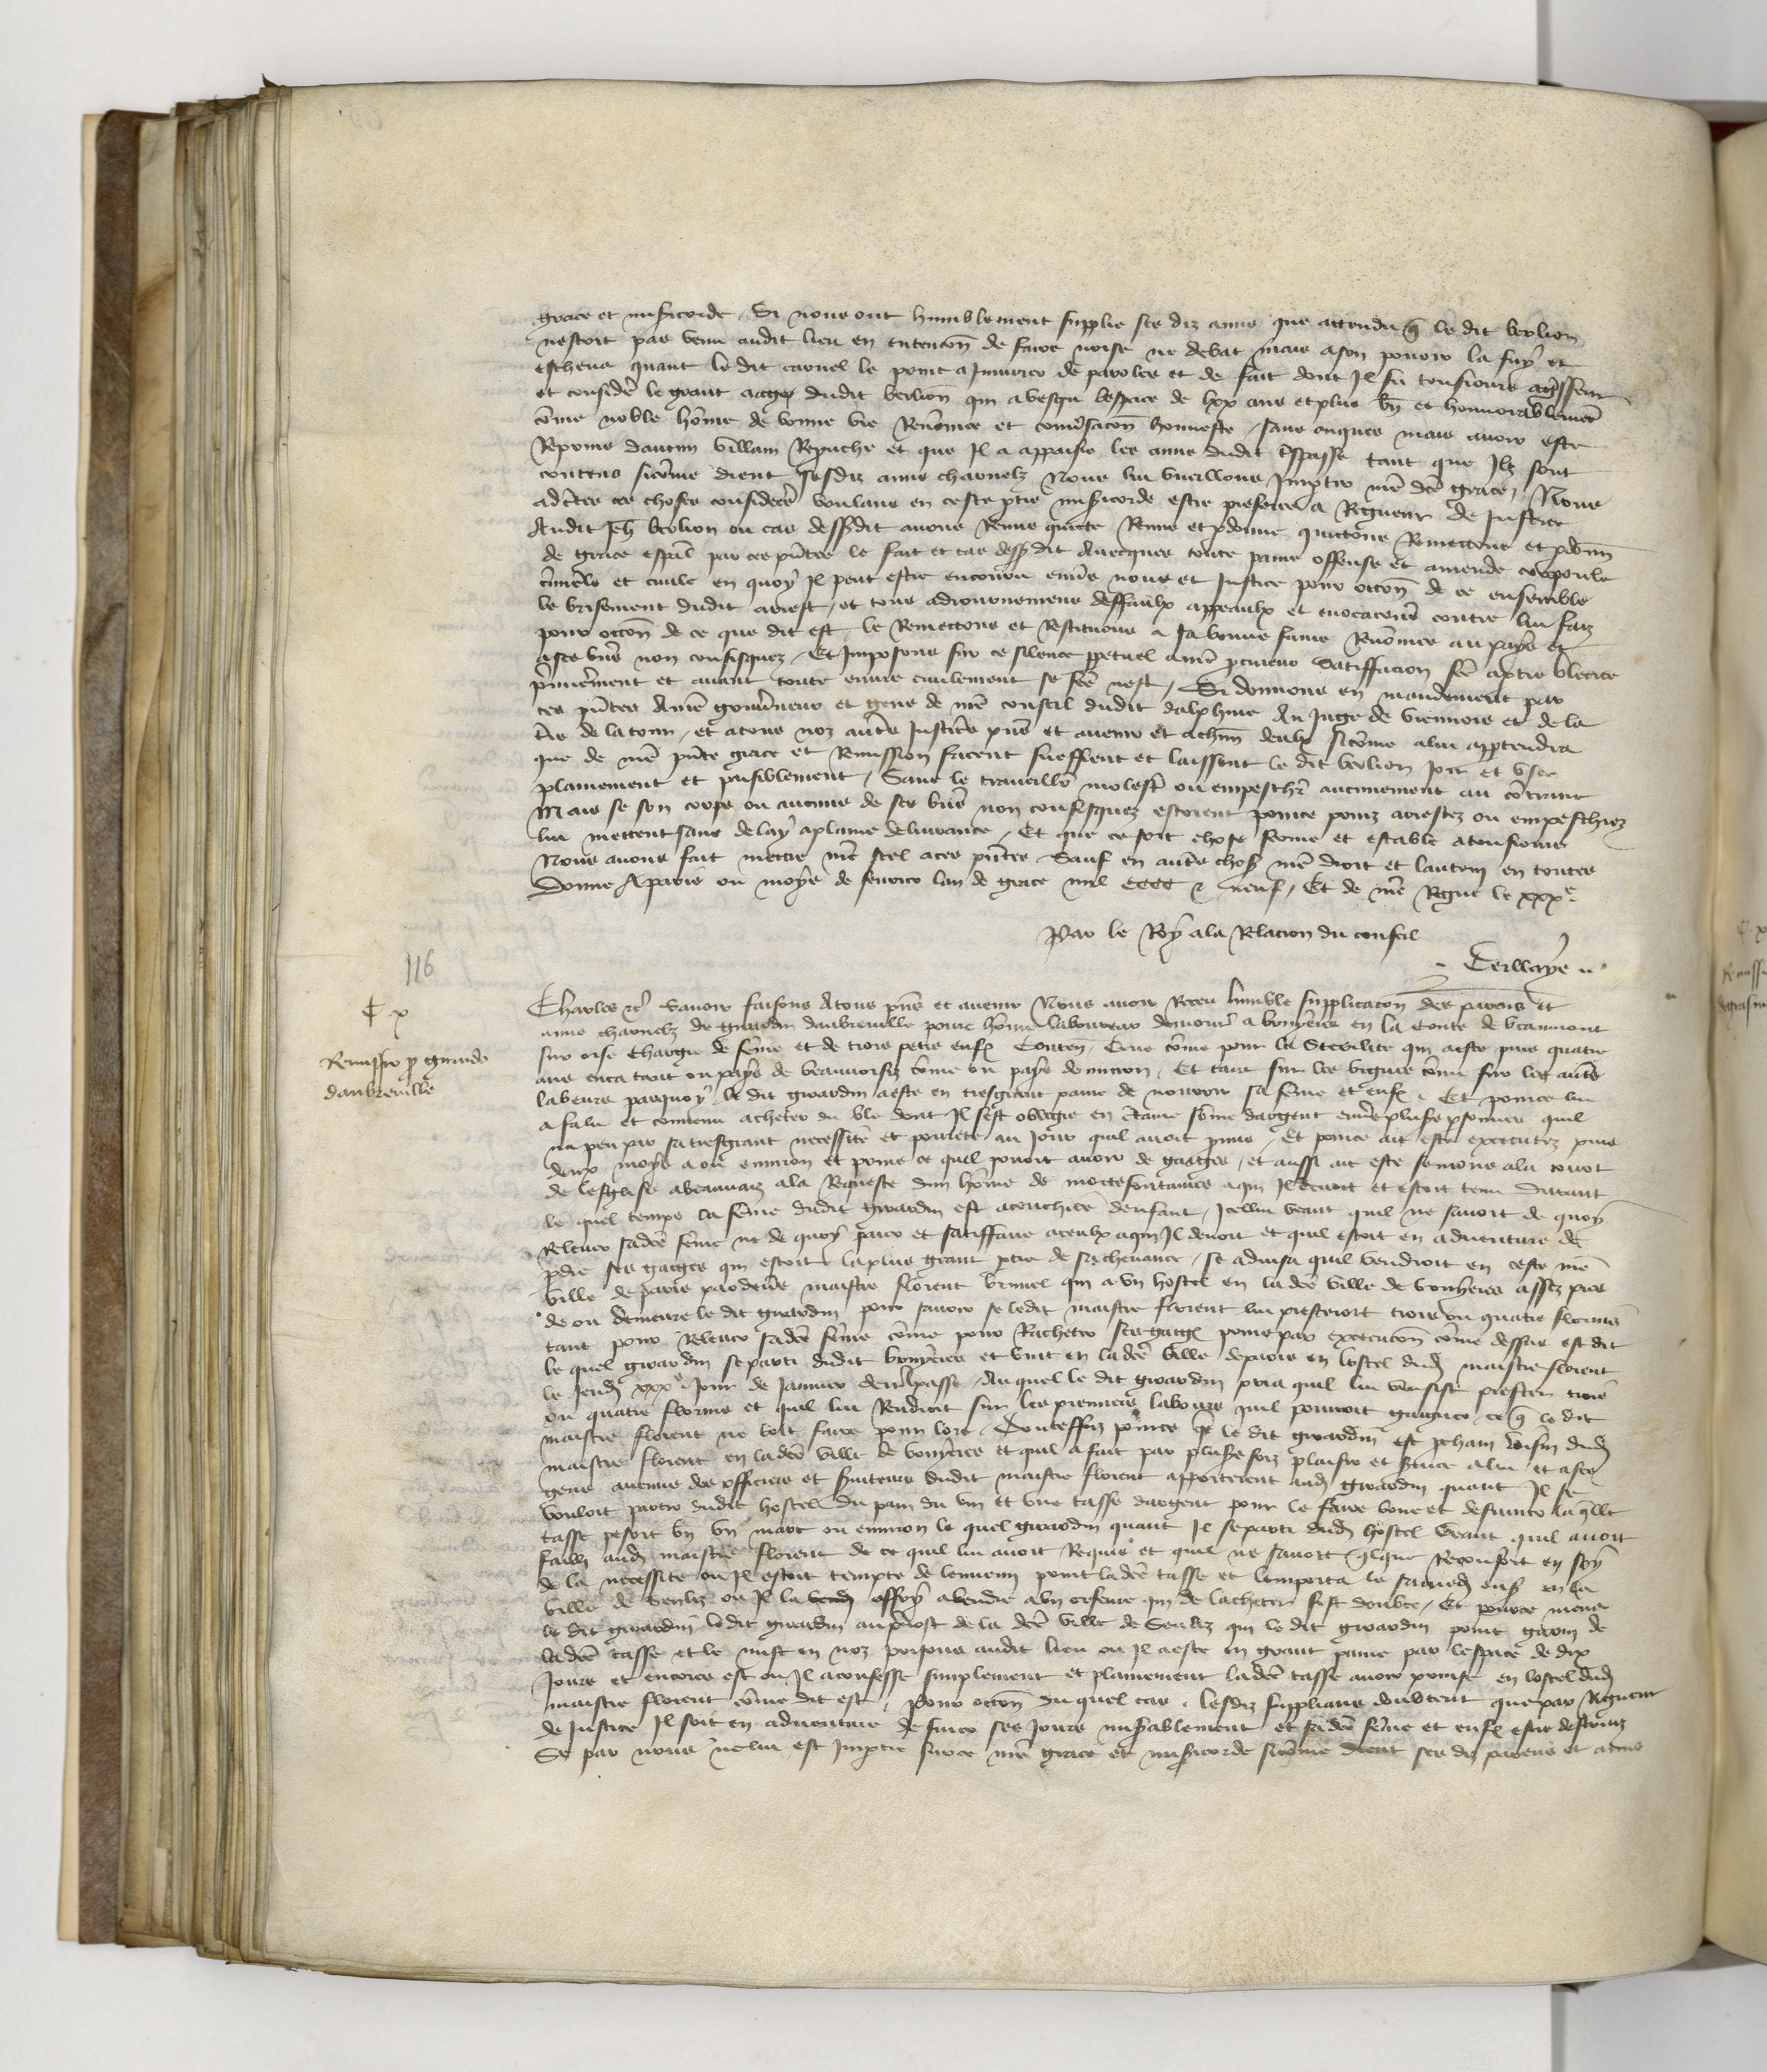 grace et misericorde Si nous ont humblement supplie ses diz amis que attendu q̃ le dit berlion
nestoit pas venu audit lieu en entencõn de faire noise ne debat mais a son pouoir la fuy et
escheua quant le dit carmel le print a Iniurier de paroles et de fait dont Il fu tousiours agresseur
et consideré le grant aage dudit berlion qui a vescu lespace de lxx ans et plus bñ et honnorablemẽt
cõme noble hõme de bonne vie Renõmee et conuersacõn honneste sans onques mais auoir este
Repris dautre villain Reprouche et que Il a appaisie les amis dudit trespasse tant que Ilz sont
contens sicõme dient sesdiz amis charnelz Nous lui vueillons Impartir nr̃e dc̃e grace Nous
adc̃tes ces choses considerées voulans en ceste ptie miséricorde estre preferee a Rigueur de Iustice
Audit Ieh̃ berlion ou cas dessusdit auons Remis quicte Remis et pdonne quictons Remettons et pdõnns
de grace esp̃al par ces pñtes le fait et cas dessusdit Auecques toute paine offense et amende corporele
criminele et ciuile en quoy Il peut estre encouru enuers nous et Iustice pour occõn de ce ensemble
le brisement dudit arrest et tous adiournemens deffaulx appeaulx et euocacions contre lui faiz
pour occõn de ce que dit est le Remettons et Restituons a sa bonne fame Renõmee au pays et
a ses biens non confisquez Et Imposons sur ce silence ppetuel a nr̃e procureur Satisfacion fc̃e a ptie blecee
premierement et auant toute euure ciuilement se fc̃e nest Si donnons en mandement par
ces pñtes A nr̃e gouuerneur et gens de nr̃e conseil dudit dalphine Au Iuge de viennois et de la
tr̃e de la tour et a tous noz autres Iusticiers pñs et auenir et a chũn deulx sicõme a lui appartendra
que de nr̃e pñte grace et Remission facent sueffrent et laissent le dit berlion Ioir et vser
plainement et paisiblement Sans le trauaillier molester ou empeschier aucunement au contraire
Mais se son corps ou aucuns de ses biens non confisquez estoient pource prins arrestez ou empeschiez
lui mettent sans delay a plaine deliurance Et que ce soit chose ferme et estable a tousiours
Nous auons fait mettre nr̃e seel a ces pñtes Sauf en autres choses nr̃e droit et lautruy en toutes
Donne A paris ou moys de feurier lan de grace mil cccc & neuf Et de nr̃e Regne le xxxe
Par le Roy a la Relacion du conseil
116
Charles &c Sauoir faisons A tous pñs et auenir Nous auoir Receu humble supplicacõn des parens et
amis charnelz de girardin daubreuille poure hõme laboureur demour̃ a bruyeres en la Conte de beaumont
sur oise Chargie de fẽme et de trois petis enfs Conten̄ Que cõme pour la Sterilite qui a este puis quatre
ans enca tant ou pays de beauuoisiz cõme ou pays denuiron Et tant sur les vignes cõme sur les autres
labeurs parquoy le dit girardin a este en tresgrant paine de nourrir sa fẽme et enfs Et pource lui
a falu et conuenu acheter du ble dont Il sest obligie en certaine sõme dargent enuers plusrs psonnes quil
na peu par sa tresgrant necessite et pourete au Iour quil auoit prins Et pource ait este executez puis
deux moys a ou enuiron et prins ce quil pouoit auoir de gaages et aussi ait este semons a la court
de leglise a beauuaiz a la Requeste dun hõme de mortefontaine a qui Il deuoit et estoit tenu Durant
le quel temps la fẽme dudit girardin est acouchiee denfant Icellui veant quil ne sauoit de quoy
Releuer sadc̃e fẽme ne de quoy paier et satiffaire a ceulx a qui Il deuoit et quil estoit en aduenture de
pdre ses gaiges qui estoit la plus grant ptie de sa cheuance se aduisa quil vendroit en ceste nr̃e
ville de paris par deuers maistre florent brunel qui a vn hostel en ladc̃e ville de bruyeres assez pres
de ou demeure le dit girardin pour sauoir se le dit maistre florent lui presteroit trois ou quatre florins
tant pour Releuer sadc̃e fẽme cõme pour Racheter ses gaigs prins par execucõn cõme dessus est dit
le quel girardin se parti dudit bruyeres et vint en ladc̃e ville de paris en lostel dud maistre florent
le Ieudj xxxe Iour de Ianuier derr̃ passe Auquel le dit girardin pria quil lui voulsist prester trois
ou quatre florins et quil lui Rendroit sur les premiers labours quil pourroit gaignier ce q̃ le dit
maistre florent ne volt faire pour lors Touteffoiz pource q̃ le dit girardin est prochain voisin dud
maistre florent en ladc̃e ville de bruyeres et quil a fait par plusrs foiz plaisir et seruice a lui et a ses
gens aucuns des officiers et seruiteurs dudit maistre florent apporterent aud girardin quant Il se
vouloit partir dudit hostel du pain du vin et vne tasse dargent pour le faire boire et desiuner la q̃lle
tasse pesoit bn vn marc ou enuiron le quel girardin quant Il se parti dud hostel veant quil auoit
failly aud maistre florent de ce quil lui auoit Requis et quil ne sauoit q̃lque Reconfort en soy
de la necessite ou Il estoit tempte de lennemi print ladc̃e tasse et lemporta le samedj ens en la
ville de Senliz ou Il la offry a vendre a vn orfeure qui de lacheter fist doubte Et pource mena
le dit girardin au preuost de la dc̃e ville de Senliz qui le dit girardin print garni de
ladc̃e tasse et le mist en noz prisons audit lieu ou Il a este en grant paine par lespace de dix
Iours et encores est ou Il a confesse simplement et plainement ladc̃e tasse auoir prinse en lostel dud
maistre florent cõme dit est Pour occõn du quel cas lesdiz supplians doubtent que par Rigueur
de Iustice Il soit en aduenture de finir ses Iours miserablement et sadc̃e fẽme et enfs estre destruiz
Se par nous ne lui est Impartie sur ce nr̃e grace et misericorde sicõme dient ses diz parens et amis
C x
Remissio p girardo
daubreuille